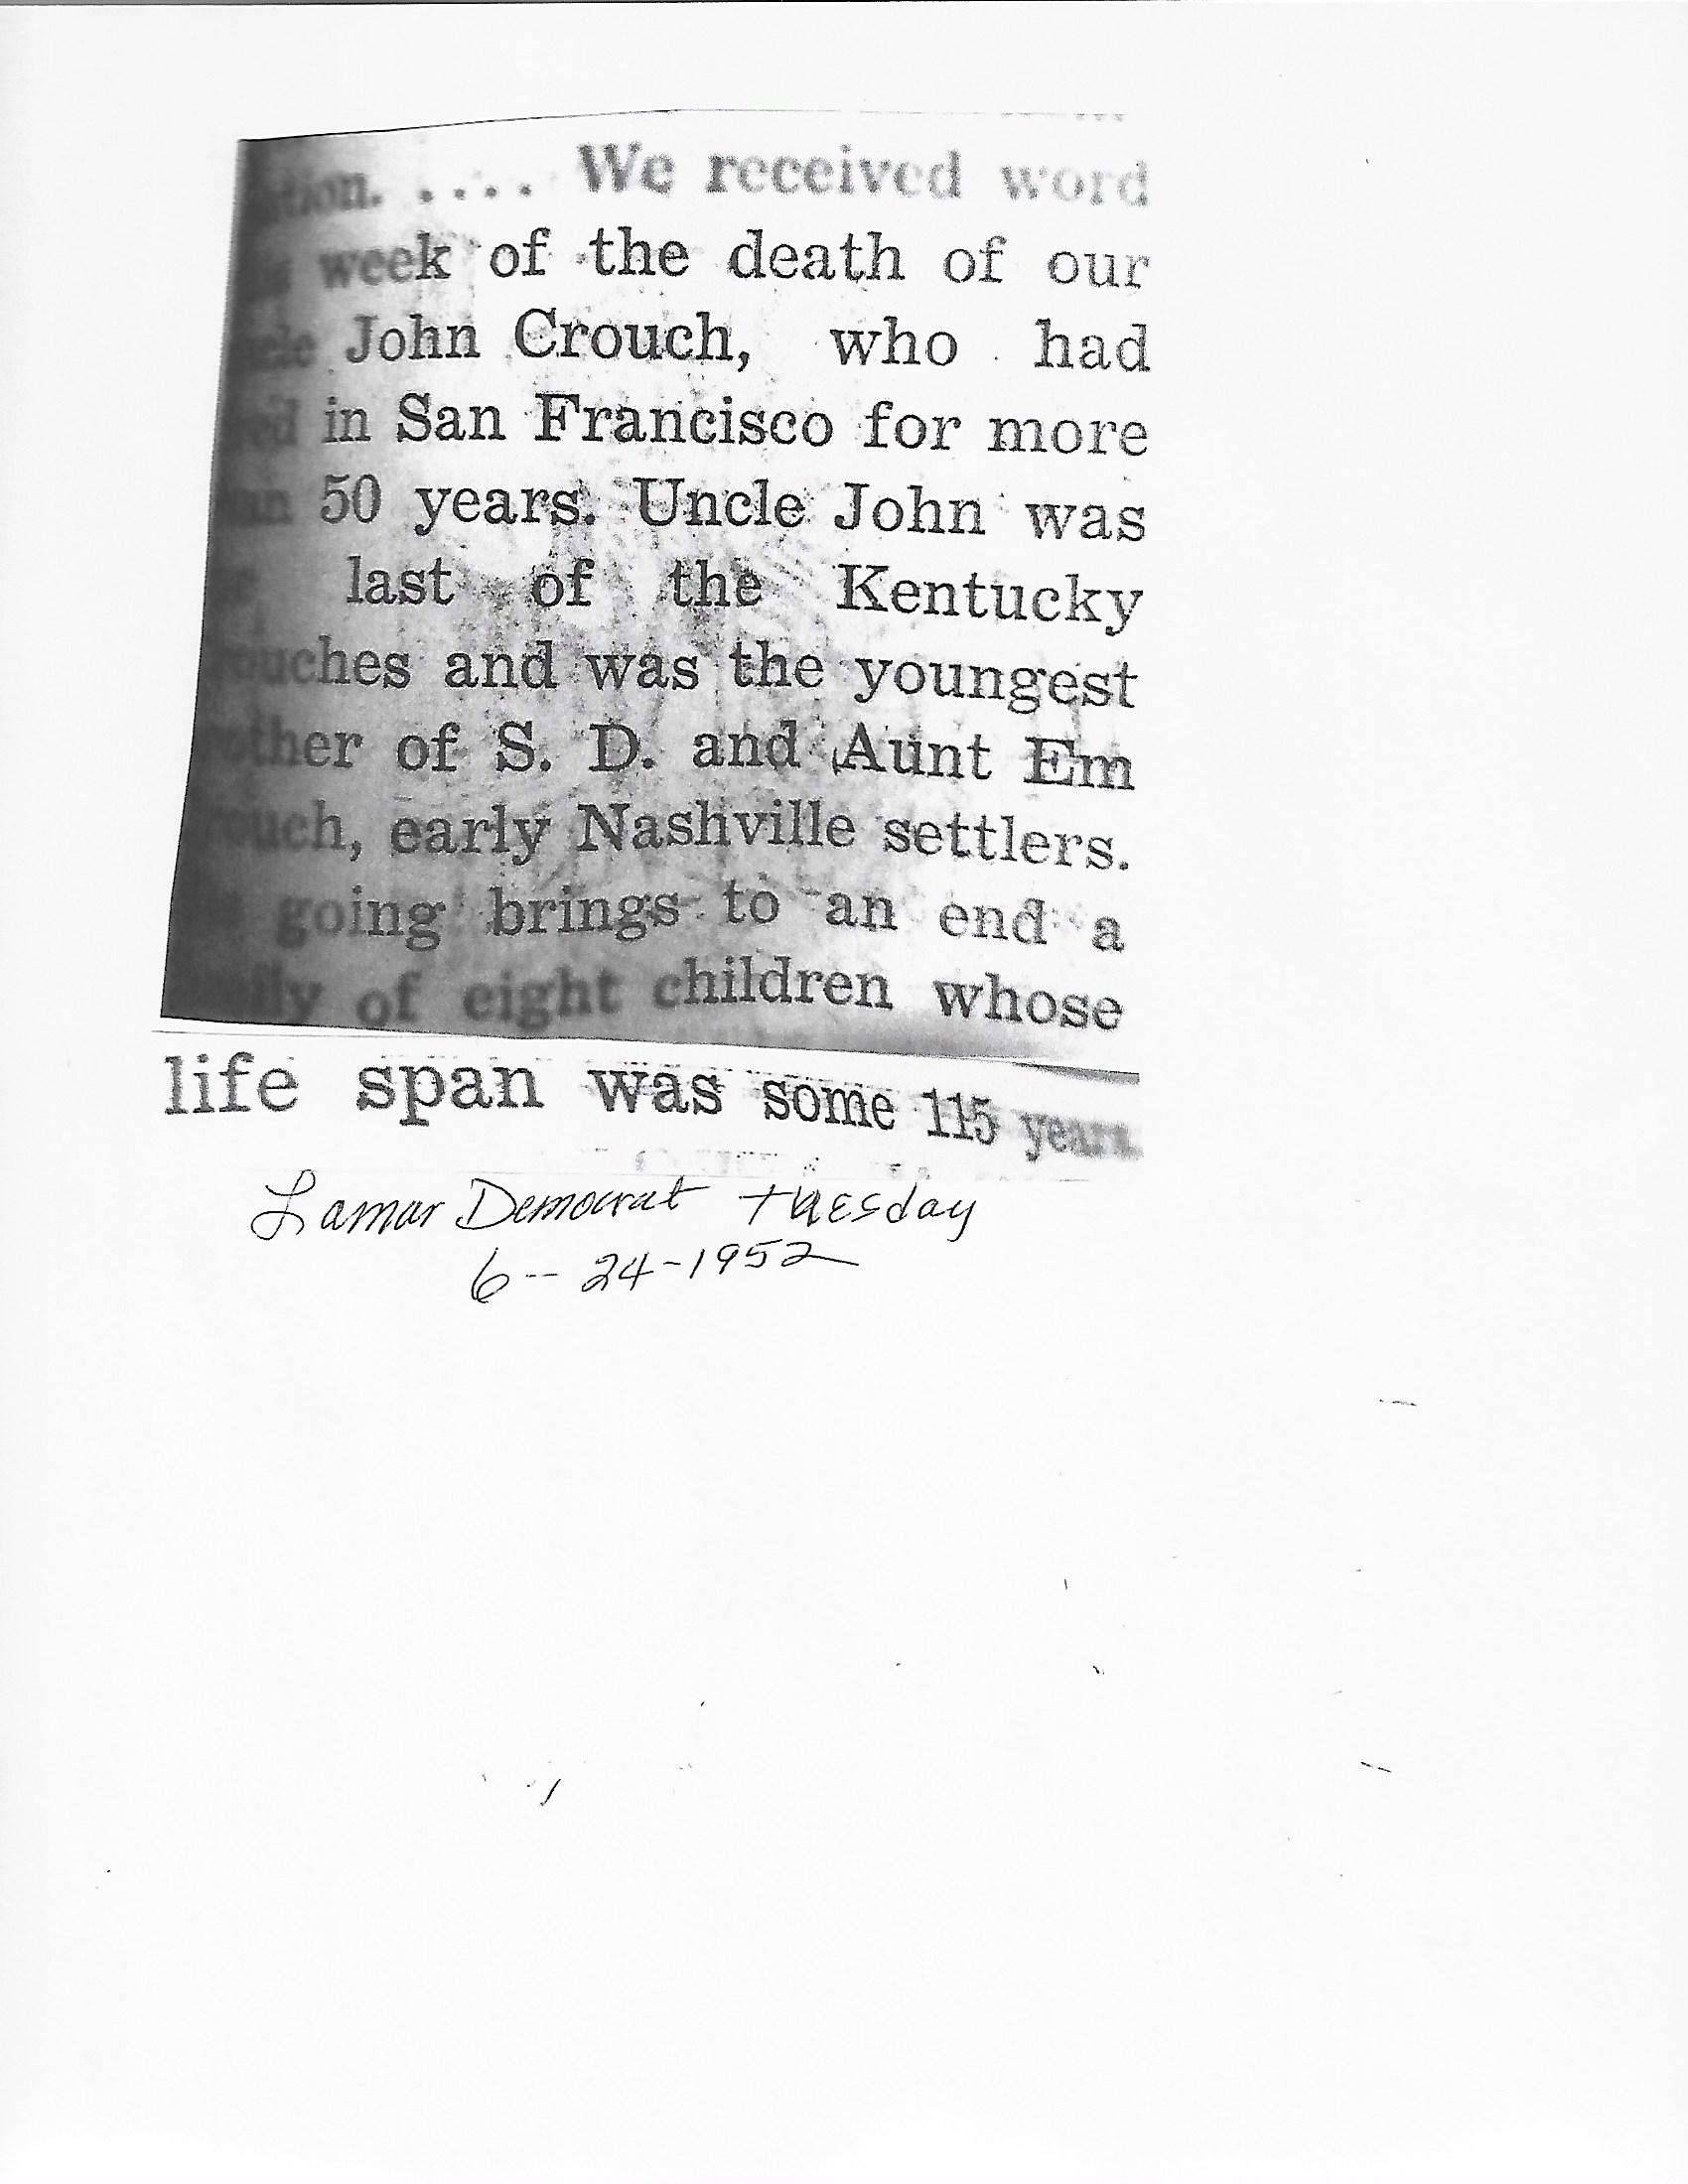 tion. .... We received word
week of the death of our
John Crouch, who had
in San Francisco for more
50 years. Uncle John was
last of the Kentucky
ouches and was the youngest
other of S. D. and Aunt Em
ouch, early Nashville settlers.
going brings to an end a
ily of eight children whose
life span was some 115 years.
Lamar Democrat Tuesday
6-- 24-1952